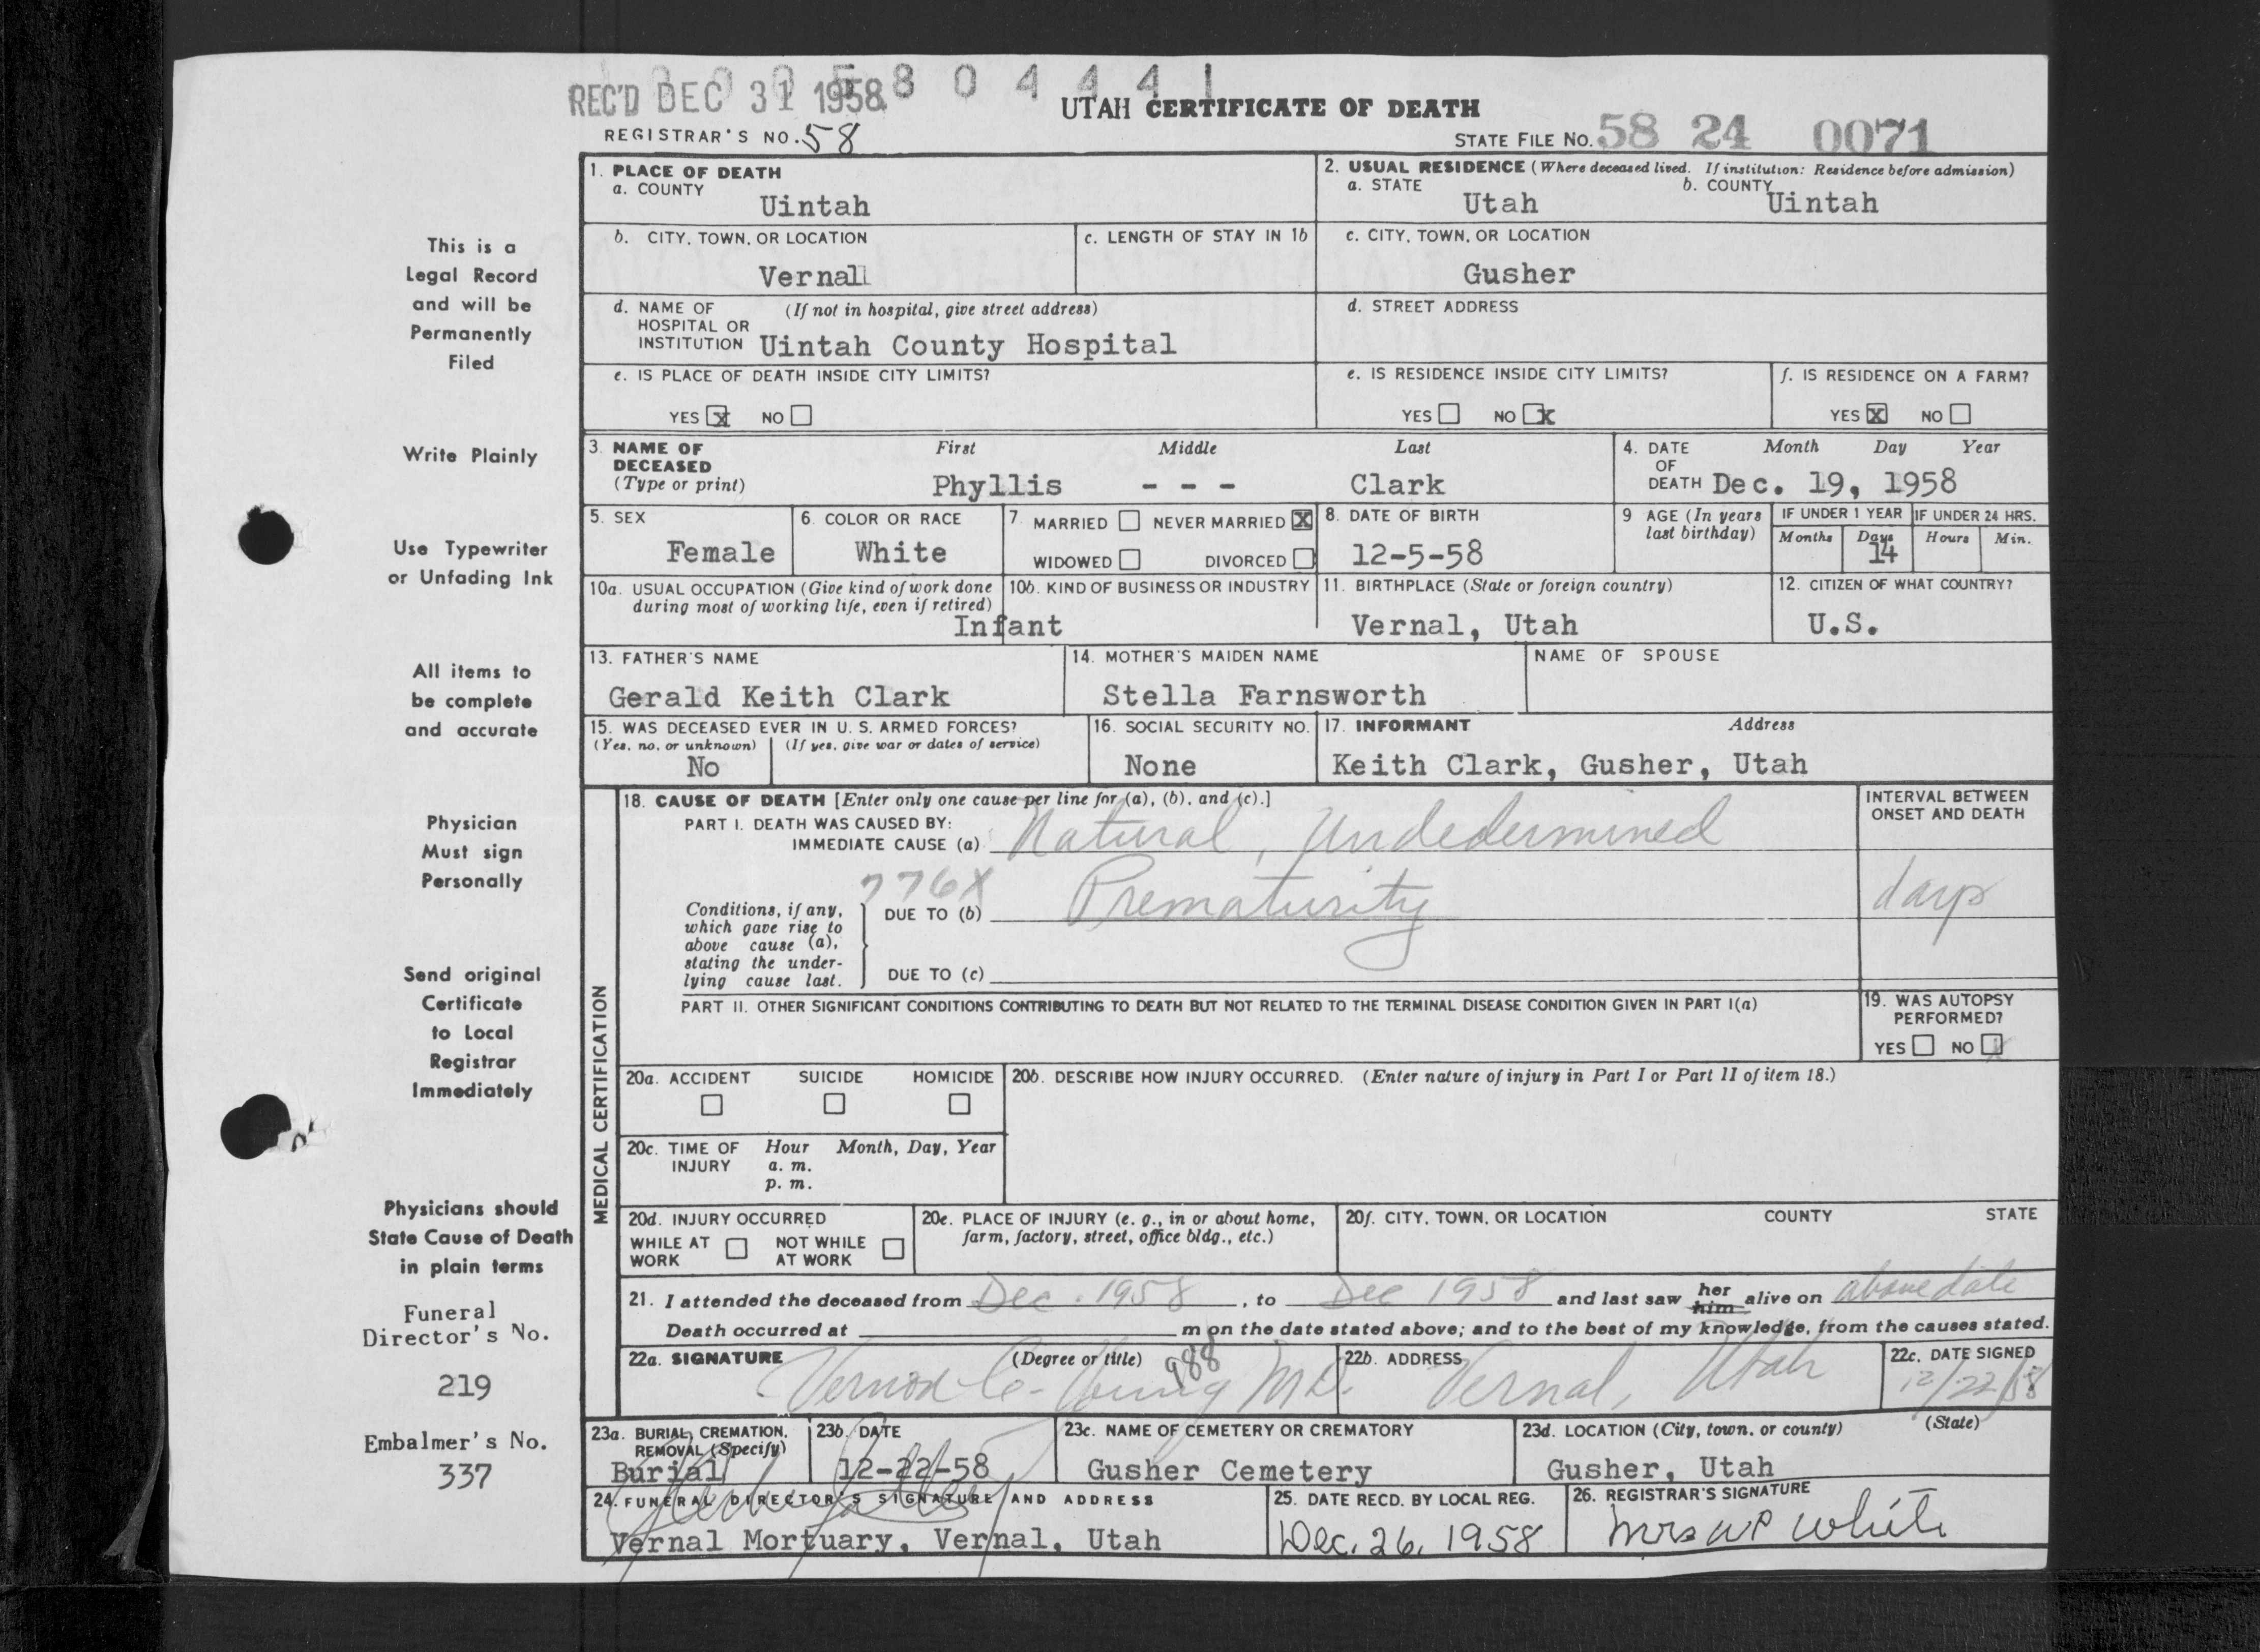 0 5 8 0 4 4 4 1
REC'D DEC 31 1958
UTAH CERTIFICATE OF DEATH
REGISTRAR'S NO. 58
STATE FILE NO. 58 24 0071
This is a
Legal Record
and will be
Permanently
Filed
Write Plainly
Use Typewriter
or Unfading Ink
All items to
be complete
and accurate
Physician
Must sign
Personally
Send original
Certificate
to Local
Registrar
Immediately
Physicians should
State Cause of Death
in plain terms
Funeral
Director's No.
219
Embalmer's No.
337
1. PLACE OF DEATH
a. COUNTY
Uintah
2. USUAL RESIDENCE (Where deceased lived. If institution: Residence before admission)
a. STATE b. COUNTY
Utah Uintah
b. CITY, TOWN, OR LOCATION
Vernal
c. LENGTH OF STAY IN 1b
c. CITY, TOWN, OR LOCATION
Gusher
d. NAME OF (If not in hospital, give street address)
HOSPITAL OR
INSTITUTION Uintah County Hospital
d. STREET ADDRESS
e. IS PLACE OF DEATH INSIDE CITY LIMITS?
YES X NO
e. IS RESIDENCE INSIDE CITY LIMITS?
YES NO X
f. IS RESIDENCE ON A FARM?
YES X NO
3. NAME OF First Middle Last
DECEASED
(Type or print) Phyllis - - - Clark
4. DATE Month Day Year
OF
DEATH Dec. 19, 1958
5. SEX
Female
6. COLOR OR RACE
White
7. MARRIED NEVER MARRIED X
WIDOWED DIVORCED
8. DATE OF BIRTH
12-5-58
9 AGE (In years
last birthday)
IF UNDER 1 YEAR
Months Days
14
IF UNDER 24 HRS.
Hours Min.
10a. USUAL OCCUPATION (Give kind of work done
during most of working life, even if retired)
Infant
10b. KIND OF BUSINESS OR INDUSTRY
11. BIRTHPLACE (State or foreign country)
Vernal, Utah
12. CITIZEN OF WHAT COUNTRY?
U.S.
13. FATHER'S NAME
Gerald Keith Clark
14. MOTHER'S MAIDEN NAME
Stella Farnsworth
NAME OF SPOUSE
15. WAS DECEASED EVER IN U. S. ARMED FORCES?
(Yes, no, or unknown) (If yes, give war or dates of service)
No
16. SOCIAL SECURITY NO.
None
17. INFORMANT Address
Keith Clark, Gusher, Utah
MEDICAL CERTIFICATION
18. CAUSE OF DEATH [Enter only one cause per line for (a), (b), and (c).]
PART I. DEATH WAS CAUSED BY:
IMMEDIATE CAUSE (a) Natural, Undedermined
776X
Conditions, if any,
which gave rise to
above cause (a),
stating the under-
lying cause last.
DUE TO (b) Prematurity
DUE TO (c)
INTERVAL BETWEEN
ONSET AND DEATH
days
PART II. OTHER SIGNIFICANT CONDITIONS CONTRIBUTING TO DEATH BUT NOT RELATED TO THE TERMINAL DISEASE CONDITION GIVEN IN PART I(a)
19. WAS AUTOPSY
PERFORMED?
YES NO X
20a. ACCIDENT SUICIDE HOMICIDE
20b. DESCRIBE HOW INJURY OCCURRED. (Enter nature of injury in Part I or Part II of item 18.)
20c. TIME OF Hour Month, Day, Year
INJURY a. m.
p. m.
20d. INJURY OCCURRED
WHILE AT NOT WHILE
WORK AT WORK
20e. PLACE OF INJURY (e. g., in or about home,
farm, factory, street, office bldg., etc.)
20f. CITY, TOWN, OR LOCATION COUNTY STATE
21. I attended the deceased from Dec. 1958, to Dec 1958 and last saw her him alive on above date
Death occurred at m on the date stated above; and to the best of my knowledge, from the causes stated.
22a. SIGNATURE (Degree or title)
Vernon C. Young M.D. 988
22b. ADDRESS
Vernal, Utah
22c. DATE SIGNED
12/22/58
23a. BURIAL, CREMATION,
REMOVAL (Specify)
Burial
23b. DATE
12-22-58
23c. NAME OF CEMETERY OR CREMATORY
Gusher Cemetery
23d. LOCATION (City, town, or county) (State)
Gusher, Utah
24. FUNERAL DIRECTOR'S SIGNATURE AND ADDRESS
Vernal Mortuary, Vernal, Utah
25. DATE RECD. BY LOCAL REG.
Dec. 26, 1958
26. REGISTRAR'S SIGNATURE
Mrs WP White